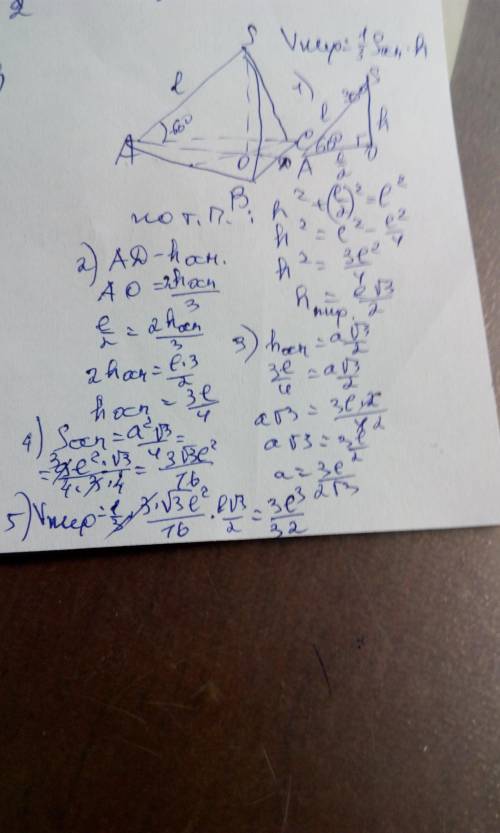 2
Vпир=1/3 Sосн·h
S
l
60°
A
O
C
B
D
1)
S
30°
l
h
60°
A
l/2
O
по т. П.:
h²+(l/2)²=l²
h²=l²-l²/4
h²=3l²/4
hпир.=l√3/2
2) AD-hосн.
AO=2hосн/3
l/2=2hосн/3
2hосн=l·3/2
hосн=3l/4
3) hосн=a√3/2
3l/4=a√3/2
a√3=3l·2/4 2
a√3=3l/2
a=3l/2√3
4) Sосн=a²√3/4=
=3 9l²·√3/4·3·4=3√3l²/16
5) Vпир=1/3·3·√3l²/16·l√3/2=3l³/32